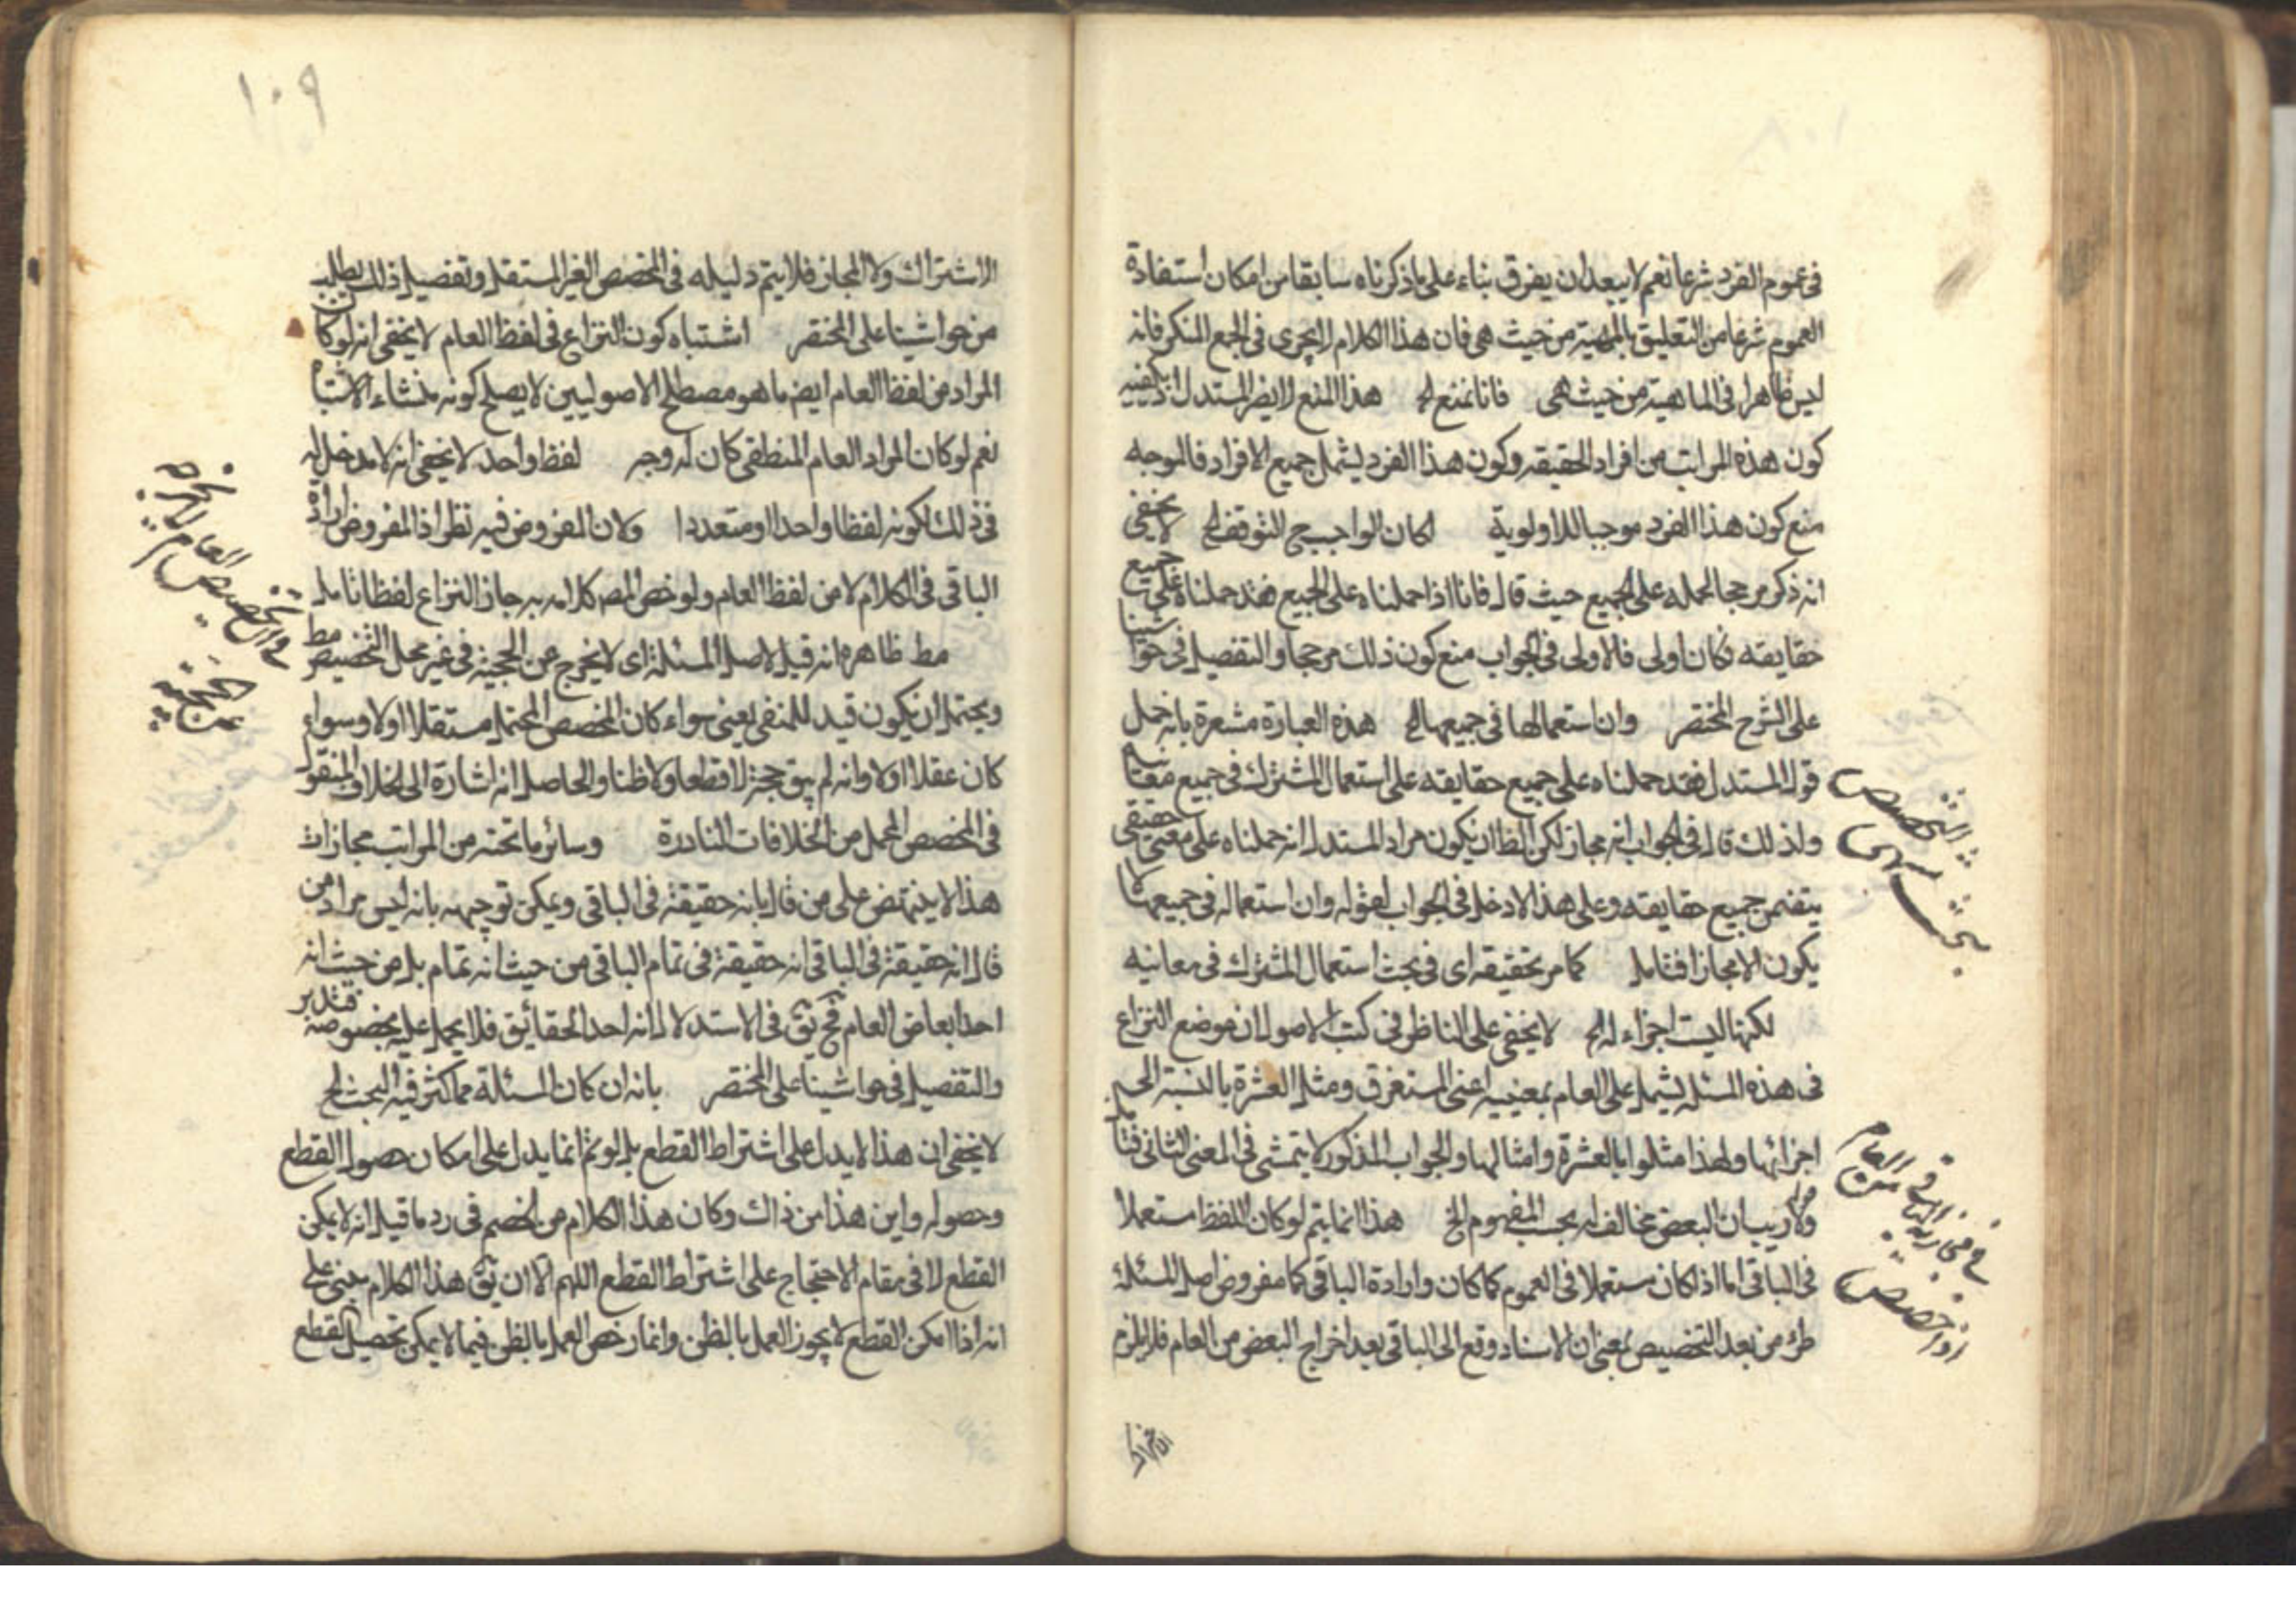 فى عموم الفرد شرعا نعم لا يبعد ان يفرق بناء على ما ذكرناه سابقا من امكان استفادة
العموم شرعا من التعليق بالمهية من حيث هى فان هذا الكلام لا يجرى فى الجمع المنكر فانه
ليس ظاهرا فى الماهية من حيث هى فانا نمنع الخ هذا المنع لا يضر المستدل اذ يكفيه
كون هذه المراتب من افراد الحقيقه وكون هذا الفرد يشمل جميع الافراد فالموجه
منع كون هذا الفرد موجبا للاولوية لكان الواجب ح التوقف الخ لا يخفى
انه ذكر مرجحا لحمله على الجميع حيث قال فانا اذا حملناه على الجميع فقد حملناه على جميع
حقايقه فكان اولى فالاولى فى الجواب منع كون ذلك مرجحا والتفصيل فى حواشينا
على الشرح المختصر وان استعمالها فى جميعها الخ هذه العبارة مشعرة بانه حمل
قول المستدل فقد حملناه على جميع حقايقه على استعمال المشترك فى جميع معانيه
ولذلك قال فى الجواب انه مجاز لكن الظ ان يكون مراد المستدل انه حملناه على معنى حقيقى
يتضمن جميع حقايقه وعلى هذا لا دخل فى الجواب لقوله وان استعماله فى جميعها لا
يكون الا مجازا فتامل كما مر تحقيقه اى فى بحث استعمال المشترك فى معانيه
لكنها ليست اجزاء له الخ لا يخفى على الناظر فى كتب الاصول ان موضع النزاع
فى هذه المسئله يشمل على العام بمعنييه اعنى المستغرق ومثل العشرة بالنسبة الى
اجزائها ولهذا مثلوا بالعشرة وامثالها والجواب المذكور لا يتمشى فى المعنى الثانى فتامل
ولا ريب ان البعض مخالف له بحسب المفهوم الخ هذا انما يتم لو كان اللفظ مستعملا
فى الباقى اما اذا كان مستعملا فى العموم كما كان وارادة الباقى كما مفروض اصل المسئلة
طرء من بعد التخصيص بمعنى ان الاسناد وقع الى الباقى بعد اخراج البعض من العام فلا يلزم
بحث التخصيص
اذا خصص العام
١٠٩
الاشتراك ولا المجاز فلا يتم دليله فى المخصص الغير المستقل وتفصيل ذلك يطلب
من حواشينا على المختصر اشتباه كون النزاع فى لفظ العام لا يخفى انه لو كان
المراد من لفظ العام ايض ما هو مصطلح الاصوليين لا يصلح كونه منشاء الاشتباه
نعم لو كان المراد العام المنطقى كان له وجه لفظ واحد لا يخفى انه لا مدخل له
فى ذلك لكونه لفظا واحدا او متعددا ولان المفروض فيه نظر اذ المفروض ارادة
الباقى فى الكلام لا من لفظ العام ولو خص المص كلامه به جاز النزاع لفظا تامل
مط ظاهره انه قيل لاصل المسئلة اى لا يخرج عن الحجية فى غير محل التخصيص مط
ويحتمل ان يكون قيد للمنفى يعنى سواء كان المخصص المحتمل مستقلا اولا وسواء
كان عقلا اولا وانه لم يبق حجة لا قطعا ولا ظنا والحاصل انه اشارة الى الخلاف المنقول
فى المخصص المجمل من الخلافات النادرة وسائر ما تحته من المراتب مجازات
هذا لا ينتهض على من قال بانه حقيقة فى الباقى ويمكن توجيهه بانه ليس مراد من
قال انه حقيقة فى الباقى انه حقيقة فى تمام الباقى من حيث انه تمام بل من حيث انه
احد ابعاض العام فح يق فى الاستدلال انه احد الحقائق فلا يحمل عليه بخصوصه فتدبر
والتفصيل فى حواشينا على المختصر بانه ان كان المسئلة مما كثر فيه البحث الخ
لا يخفى ان هذا لا يدل على اشتراط القطع بل لو تم انما يدل على امكان حصول القطع
وحصوله واين هذا من ذاك وكان هذا الكلام من الخصم فى رد ما قيل انه لا يمكن
القطع لا فى مقام الاحتجاج على اشتراط القطع اللهم الا ان يق هذا الكلام يبنى على
انه اذا امكن القطع لا يجوز العمل بالظن وانما رخص العمل بالظن فيما لا يمكن تحصيل القطع
تخصيص العام لا يخرجه
عن الحجية